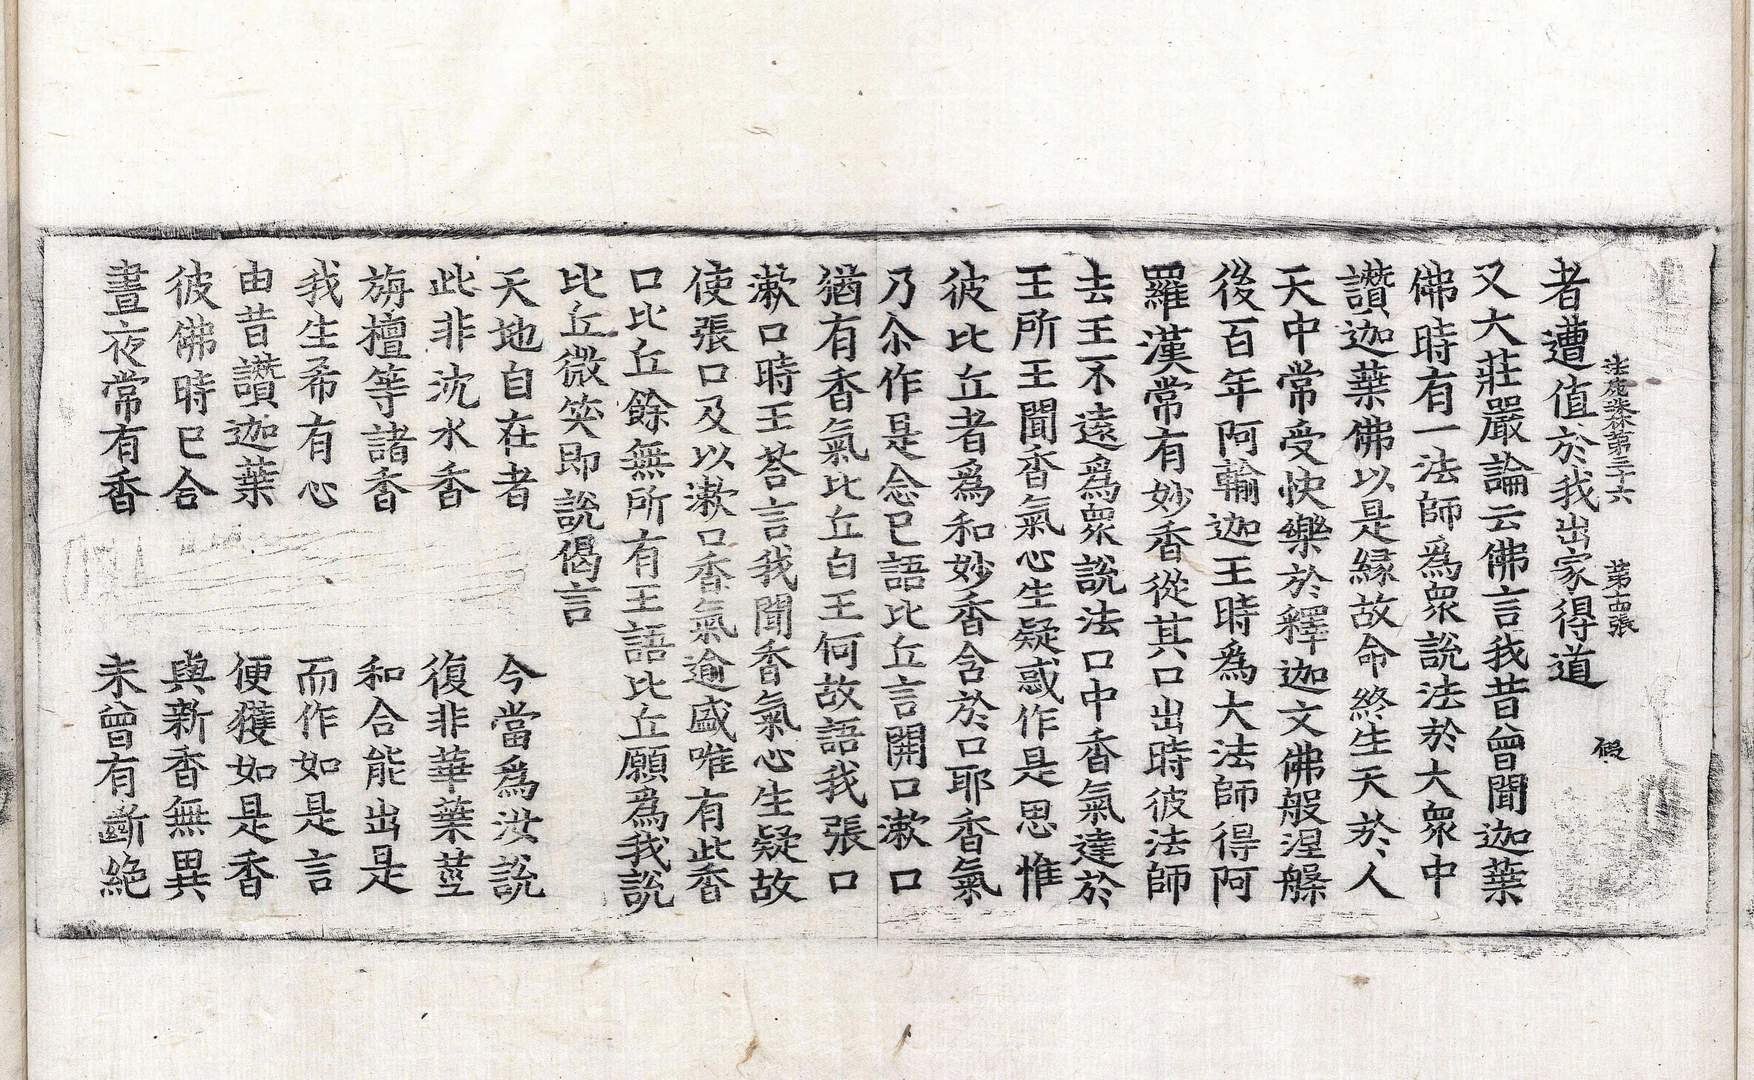 法苑珠林第三十六 第十四張 假
者遭值於我出家得道
又大莊嚴論云佛言我昔曾聞迦葉
佛時有一法師爲衆說法於大衆中
讚迦葉佛以是緣故命終生天於人
天中常受快樂於釋迦文佛般涅槃
後百年阿輸迦王時爲大法師得阿
羅漢常有妙香從其口出時彼法師
去王不遠爲衆說法口中香氣達於
王所王聞香氣心生疑惑作是思惟
彼比丘者爲和妙香含於口耶香氣
乃尒作是念已語比丘言開口漱口
猶有香氣比丘白王何故語我張口
漱口時王荅言我聞香氣心生疑故
使張口及以漱口香氣逾盛唯有此香
口比丘餘無所有王語比丘願爲我說
比丘微笑即說偈言
天地自在者 今當爲汝說
此非沈水香 復非華葉莖
旃檀等諸香 和合能出是
我生希有心 而作如是言
由昔讚迦葉 便獲如是香
彼佛時已合 與新香無異
晝夜常有香 未曾有斷絶